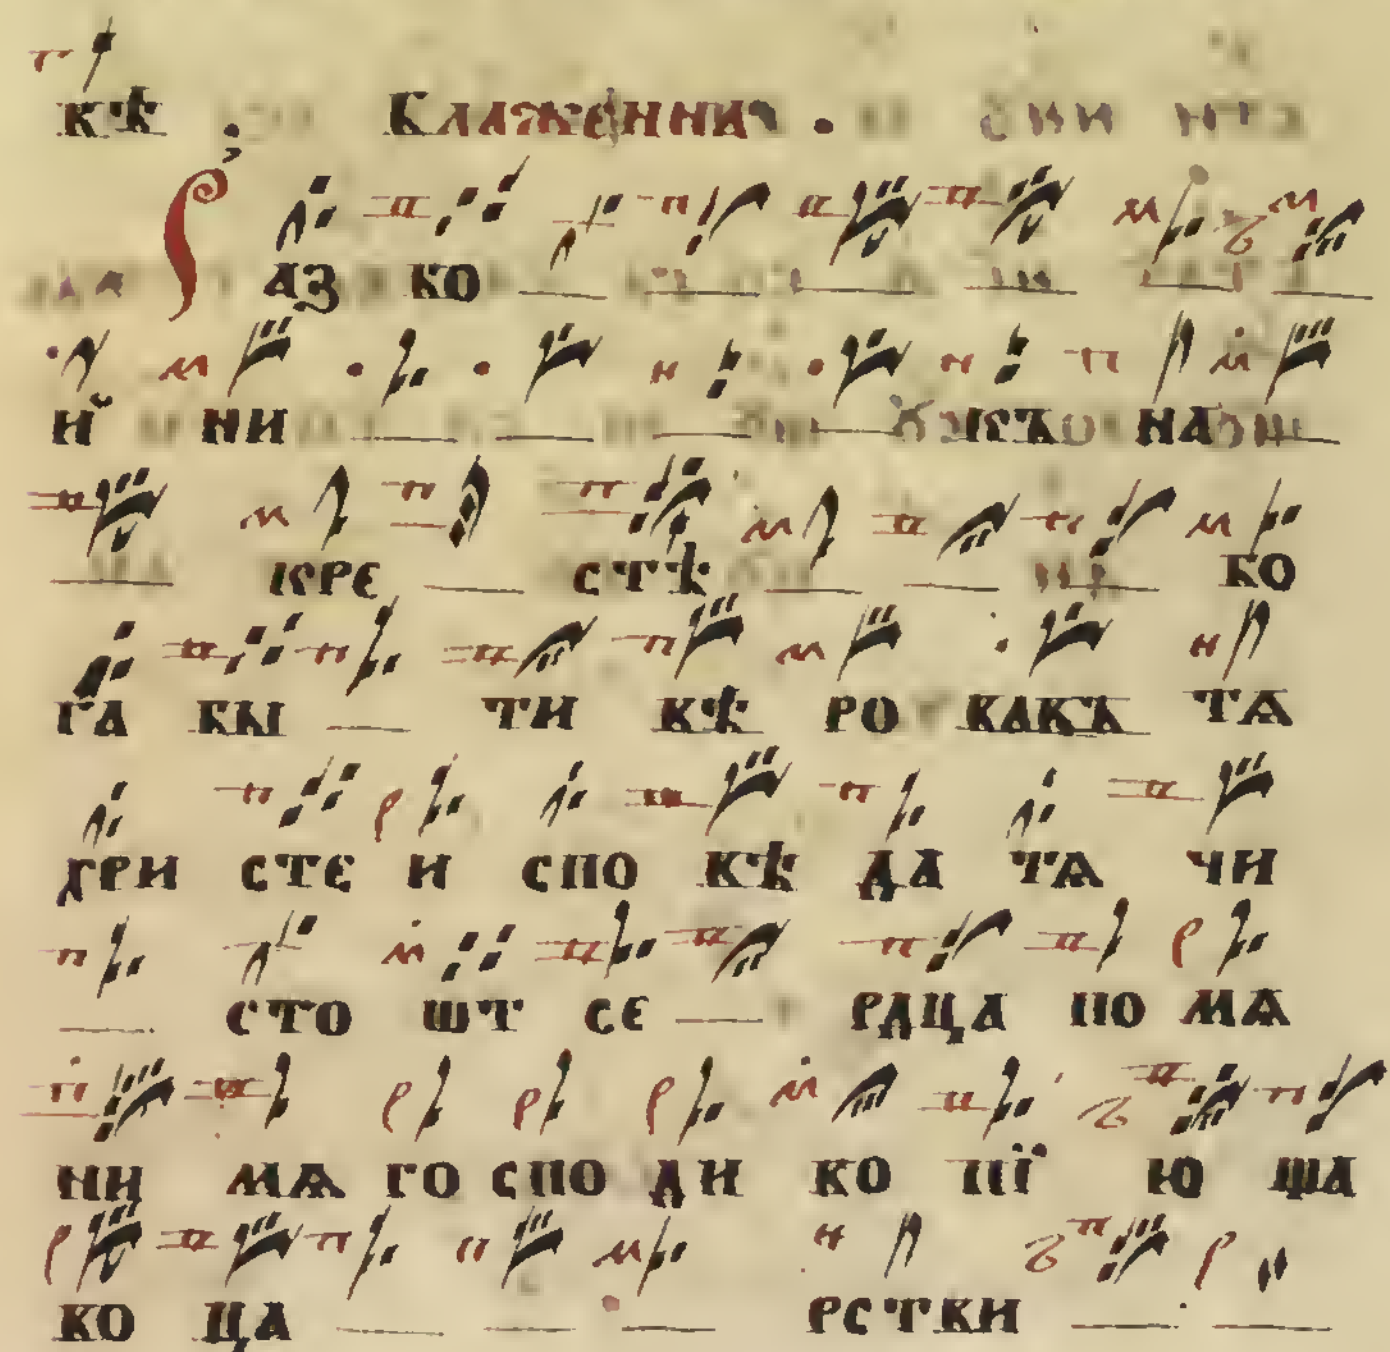 вѣ ; Блаженна .
Р аз бо
й ни къ на
кре стѣ бо
га бы ти вѣ ро вавъ тѧ
хри сте и спо вѣ да тѧ чи
сто ѡт се рдца по мѧ
ни мѧ го спо ди во пї ю ща
во ца рстви